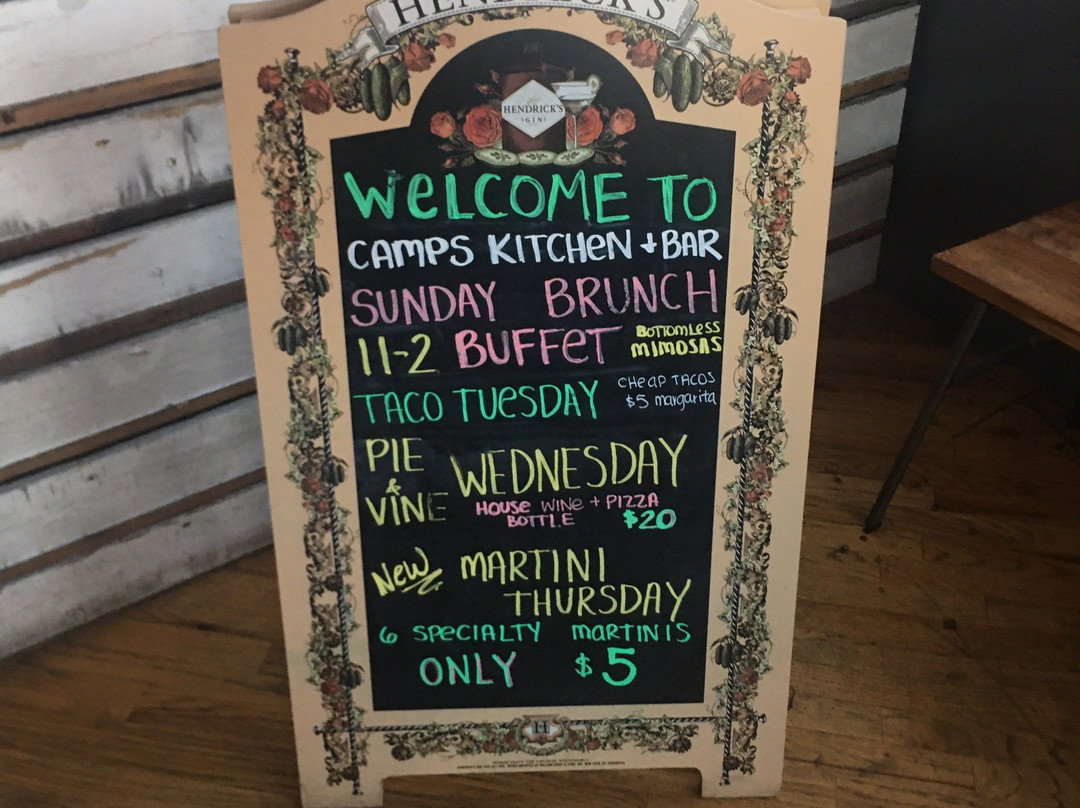 HENDRICK'S
HENDRICK'S
GIN
WeLCOME TO
CAMPS KITCHeN + BAR
SUNDAY BRUNCH
11-2 BUFFeT BOTTOMLeSS MIMOSAS
TACO TUeSDAY CHeAP TACOS
$5 margarita
PIE & VINE WEDNESDAY
HOUSe WINe + PIZZA
BOTTLE $20
New MARTINI
THURSDAY
6 SPeCIALTY mARTINIS
ONLY $5
H